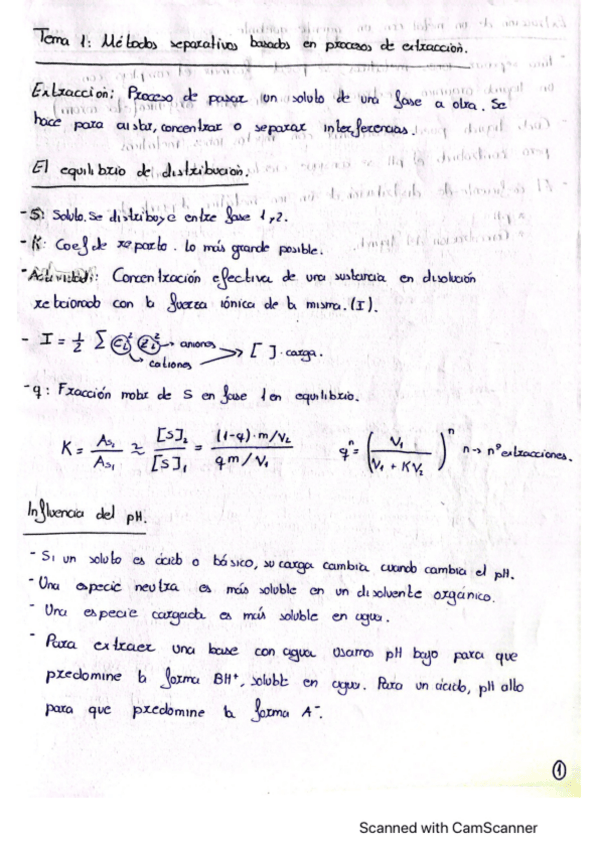 Tema 1: Métodos separativos basados en procesos de extracción.
Extracción: Proceso de pasar un soluto de una fase a otra. Se
hace para aislar, concentrar o separar interferencias.
El equilibrio de distribución.
- S: Soluto. Se distribuye entre fase 1 y 2.
- K: Coef de reparto. Lo más grande posible.
- Actividad: Concentración efectiva de una sustancia en disolución
relacionado con la fuerza iónica de la misma. (I).
- I = 1/2 Σ Ci² Zi² → aniones → [ ] · carga.
→ cationes
- q: Fracción molar de S en fase 1 en equilibrio.
K = As₂/As₁ ≈ [S]₂/[S]₁ = (1-q)·m/V₂ / qm/V₁ qⁿ = (V₁ / V₁ + KV₂)ⁿ n → nº extracciones.
Influencia del pH.
- Si un soluto es ácido o básico, su carga cambia cuando cambia el pH.
- Una especie neutra es más soluble en un disolvente orgánico.
- Una especie cargada es más soluble en agua.
- Para extraer una base con agua usamos pH bajo para que
predomine la forma BH⁺, soluble en agua. Para un ácido, pH alto
para que predomine la forma A⁻.
1
Scanned with CamScanner